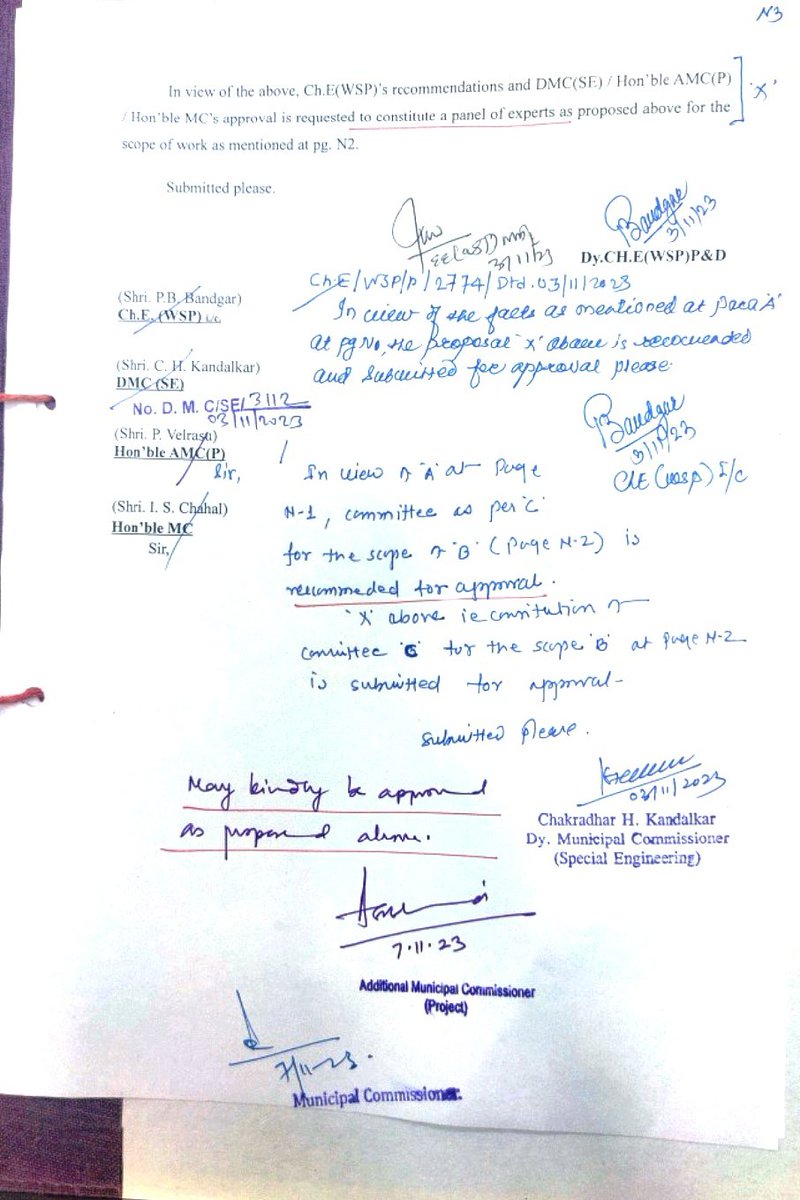 N3
In view of the above, Ch.E(WSP)'s recommendations and DMC(SE) / Hon'ble AMC(P)
/ Hon'ble MC's approval is requested to constitute a panel of experts as proposed above for the
scope of work as mentioned at pg. N2.
'X'
Submitted please.
3/11/23
Bandgar
3/11/23
Dy.CH.E(WSP)P&D
Ch.E/WSP/P/2774/Dtd.03/11/2023
In view of the facts as mentioned at para 'A'
at pg N1, the proposal 'x' above is recommended
and submitted for approval please.
Bandgar
3/11/23
ChE (WSP) I/c
(Shri. P.B. Bandgar)
Ch.E. (WSP) i/c.
(Shri. C. H. Kandalkar)
DMC (SE)
No. D. M. C/SE/3112
03/11/2023
(Shri. P. Velrasu)
Hon'ble AMC(P)
(Shri. I. S. Chahal)
Hon'ble MC
Sir,
Sir,
In view of 'A' at Page
N-1, committee as per 'C'
for the scope of 'B' (Page N-2) is
recommeded for approval.
'X' above ie constitution of
committee 'C' for the scope 'B' at Page N-2
is submitted for approval-
Submitted please.
03/11/2023
Chakradhar H. Kandalkar
Dy. Municipal Commissioner
(Special Engineering)
May kindly be approved
as proposed above.
7.11.23
Additional Municipal Commissioner
(Project)
7/11-23.
Municipal Commissioner.